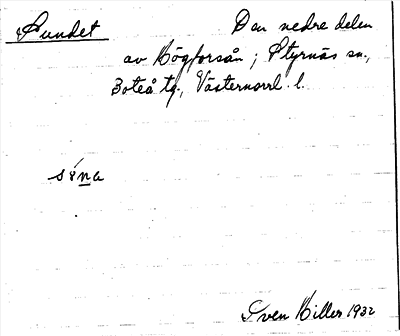 Sundet Den nedre delen
av Högforsån; Styrnäs sn.,
Boteå tg., Västernorrl. l.
Sven Hiller 1932